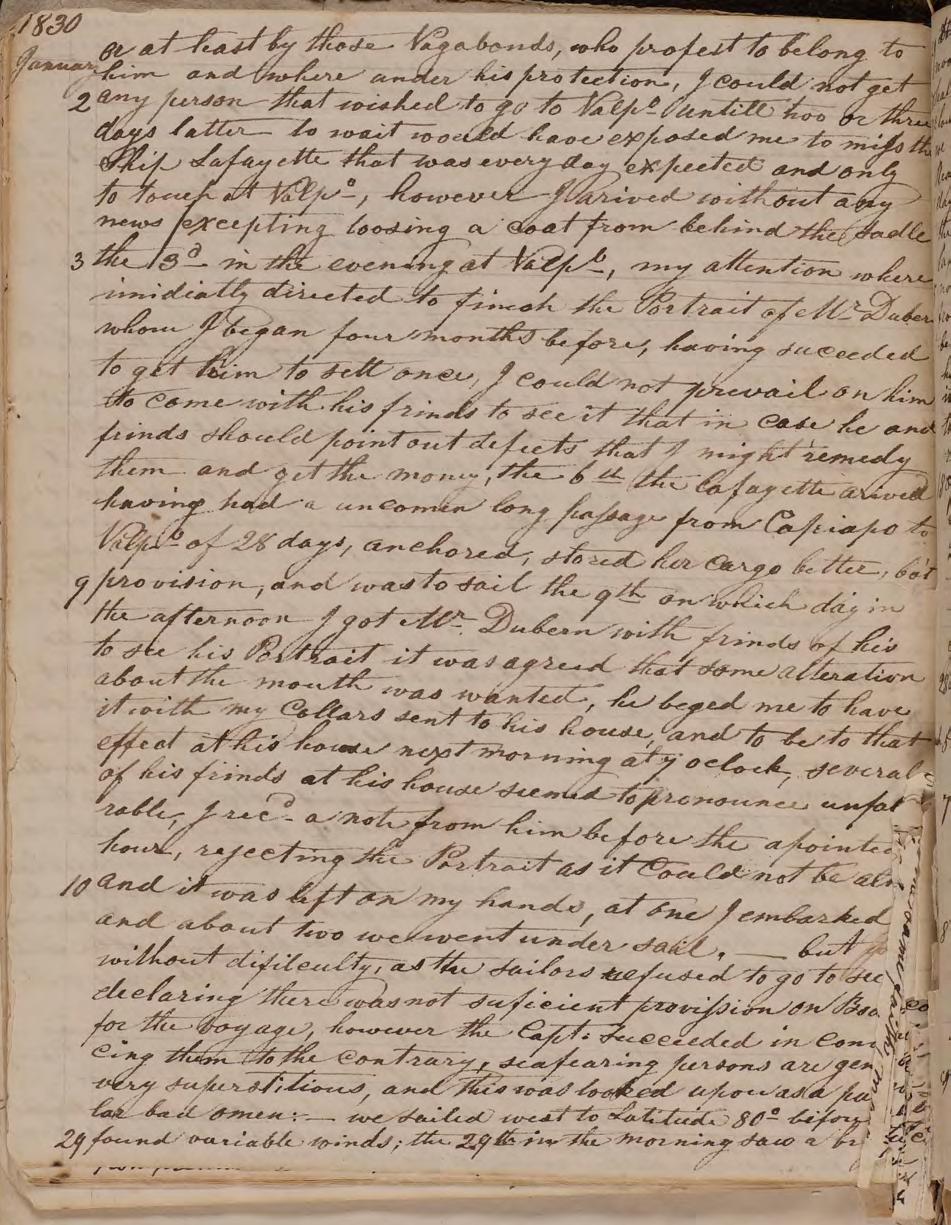 1830
January
or at least by those Vagabonds, who profest to belong to
him and where under his protection, I could not get
2 any person that wished to go to Valpo untill two or three
days latter to wait would have exposed me to miss the
Ship Lafayette that was every day expected and only
to touch at Valpo, however I arived without any
news excepting loosing a coat from behind the Sadle
3 the 3d in the evening at Valpo, my attention where
imidiatly directed to finish the Portrait of Mr Dubern
whom I began four months before, having succeeded
to get him to sett once, I could not prevail on him
to come with his frinds to see it that in case he and
frinds should point out defects that I might remedy
them and get the money, the 6th the Lafayette arived
having had a uncomen long passage from Capiapo to
Valpo of 28 days, anchored, stored her Cargo better, bot
9 provision, and was to sail the 9th on which day in
the afternoon I got Mr Dubern with frinds of his
to see his Portrait it was agreed that some alteration
about the mouth was wanted, he beged me to have
it with my Collars sent to his house, and to be to that
effect at his house next morning at 7 oclock, several
of his frinds at his house seemed to pronounce unfai
rable, I recd a note from him before the apointed
hour, rejecting the Portrait as it Could not be
10 and it was left on my hands, at one I embarked
and about two we went under sail. — but
without dificculty, as the sailors refused to go to see
declaring there was not suficient provission on Boa
for the voyage, however the Capt. succeeded in
cing them to the contrary, seafearing persons are gen
very superstitious, and this was looked upon as a pa
lar bad omen: — we sailed west to Latitude 80° before
29 found variable winds; the 29th in the morning saw a